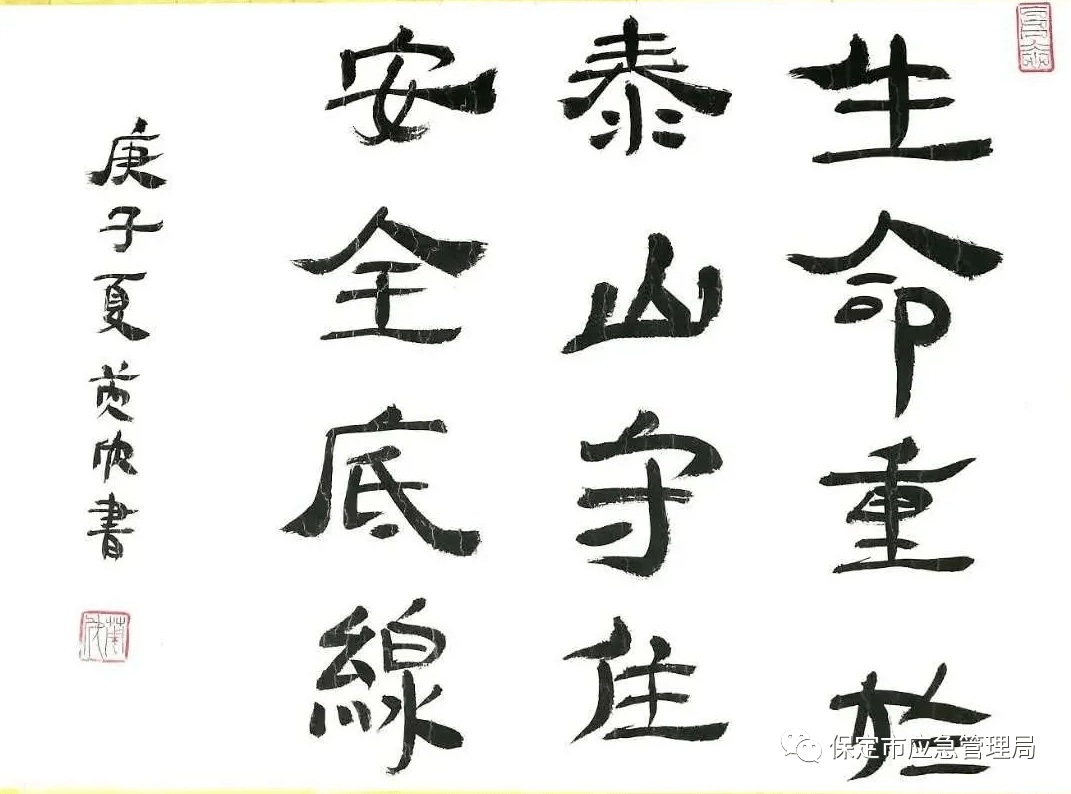 生命重於
泰山守住
安全底線
庚子夏黄欣書
保定市应急管理局